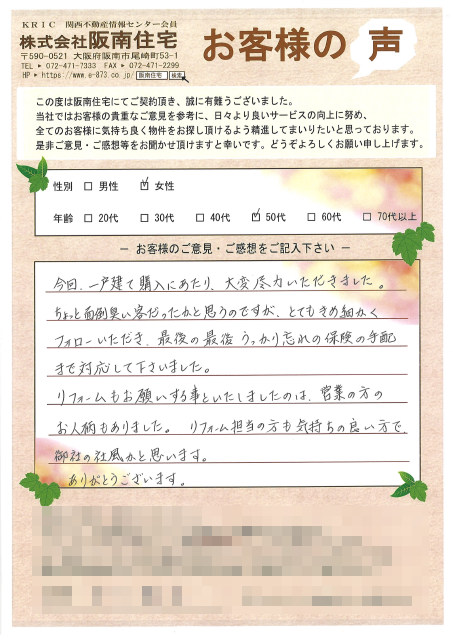 KRIC 関西不動産情報センター会員
株式会社阪南住宅
〒590-0521 大阪府阪南市尾崎町53-1
TEL ▶ 072-471-7333 FAX ▶ 072-471-2299
HP ▶ https://www.e-873.co.jp/ 阪南住宅 検索
お客様の声
この度は阪南住宅にてご契約頂き、誠に有難うございました。
当社ではお客様の貴重なご意見を参考に、日々より良いサービスの向上に努め、
全てのお客様に気持ち良く物件をお探し頂けるよう精進してまいりたいと思っております。
是非ご意見・ご感想等をお聞かせ頂けますと幸いです。どうぞよろしくお願い申し上げます。
性別 □ 男性 ☑ 女性
年齢 □ 20代 □ 30代 □ 40代 ☑ 50代 □ 60代 □ 70代以上
― お客様のご意見・ご感想をご記入下さい ―
今回、一戸建て購入にあたり、大変尽力いただきました。
ちょっと面倒臭い客だったかと思うのですが、とてもきめ細かく
フォローいただき、最後の最後 うっかり忘れの保険の手配
まで対応して下さいました。
リフォームもお願いする事といたしましたのは、営業の方の
お人柄もありました。 リフォーム担当の方も気持ちの良い方で、
御社の社風かと思います。
ありがとうございます。